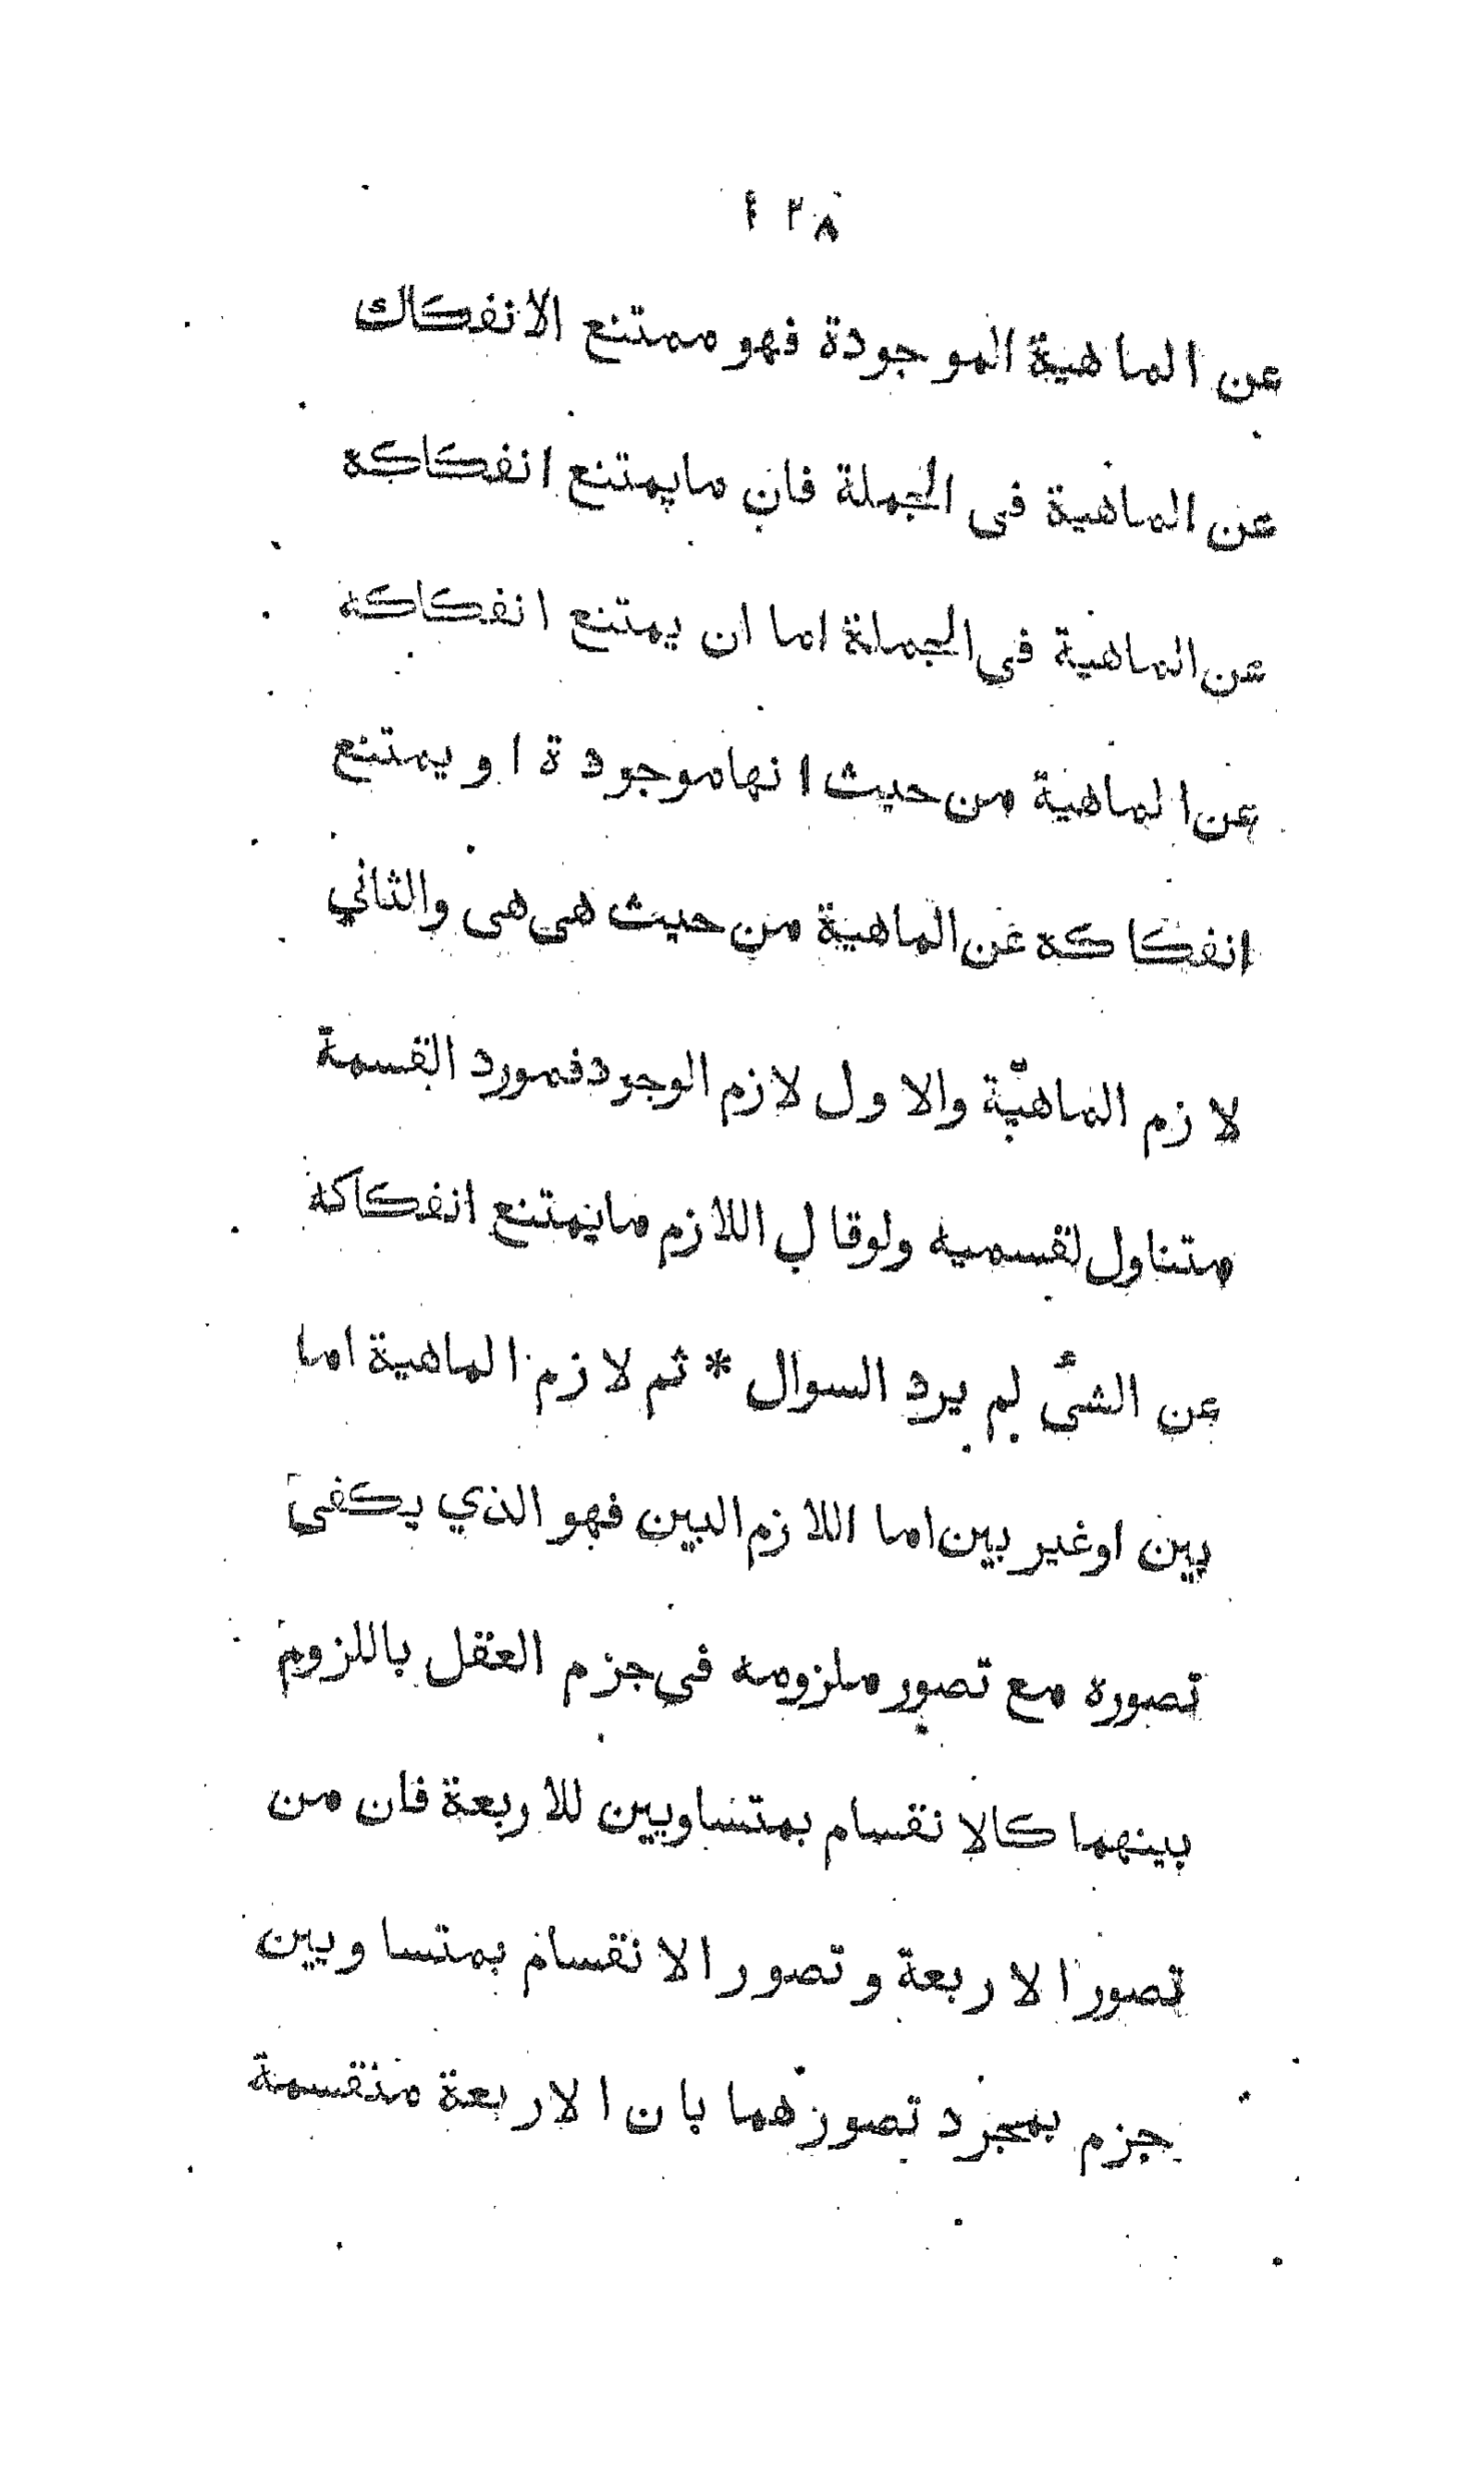 ١٢٨
عن الماهية الموجودة فهو ممتنع الانفكاك
عن الماهية فى الجملة فان مايمتنع انفكاكه
عن الماهية في الجملة اما ان يمتنع انفكاكه
عن الماهية من حيث انها موجودة او يمتنع
انفكاكه عن الماهية من حيث هى هى والثاني
لازم الماهيّة والاول لازم الوجود فمورد القسمة
متناول لقسميه ولوقال اللازم مايمتنع انفكاكه
عن الشئ لم يرد السوال * ثم لازم الماهية اما
بين اوغير بين اما اللازم البين فهو الذي يكفى
تصوره مع تصور ملزومه في جزم العقل باللزوم
بينهما كالانقسام بمتساويين للاربعة فان من
تصور الاربعة وتصور الانقسام بمتساويين
جزم بمجرد تصورهما بان الاربعة منقسمة